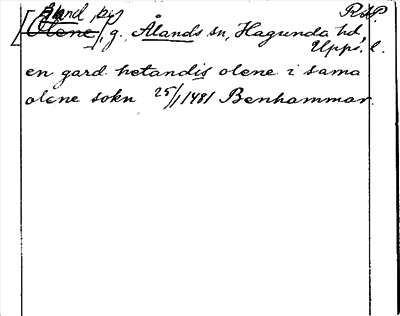 Åland, by RAP.
[Olene], g. Ålands sn, Hagunda hd,
Upps. l.
en gard hetandis olene i sama
olene sokn 25/1 1481 Benhammar.